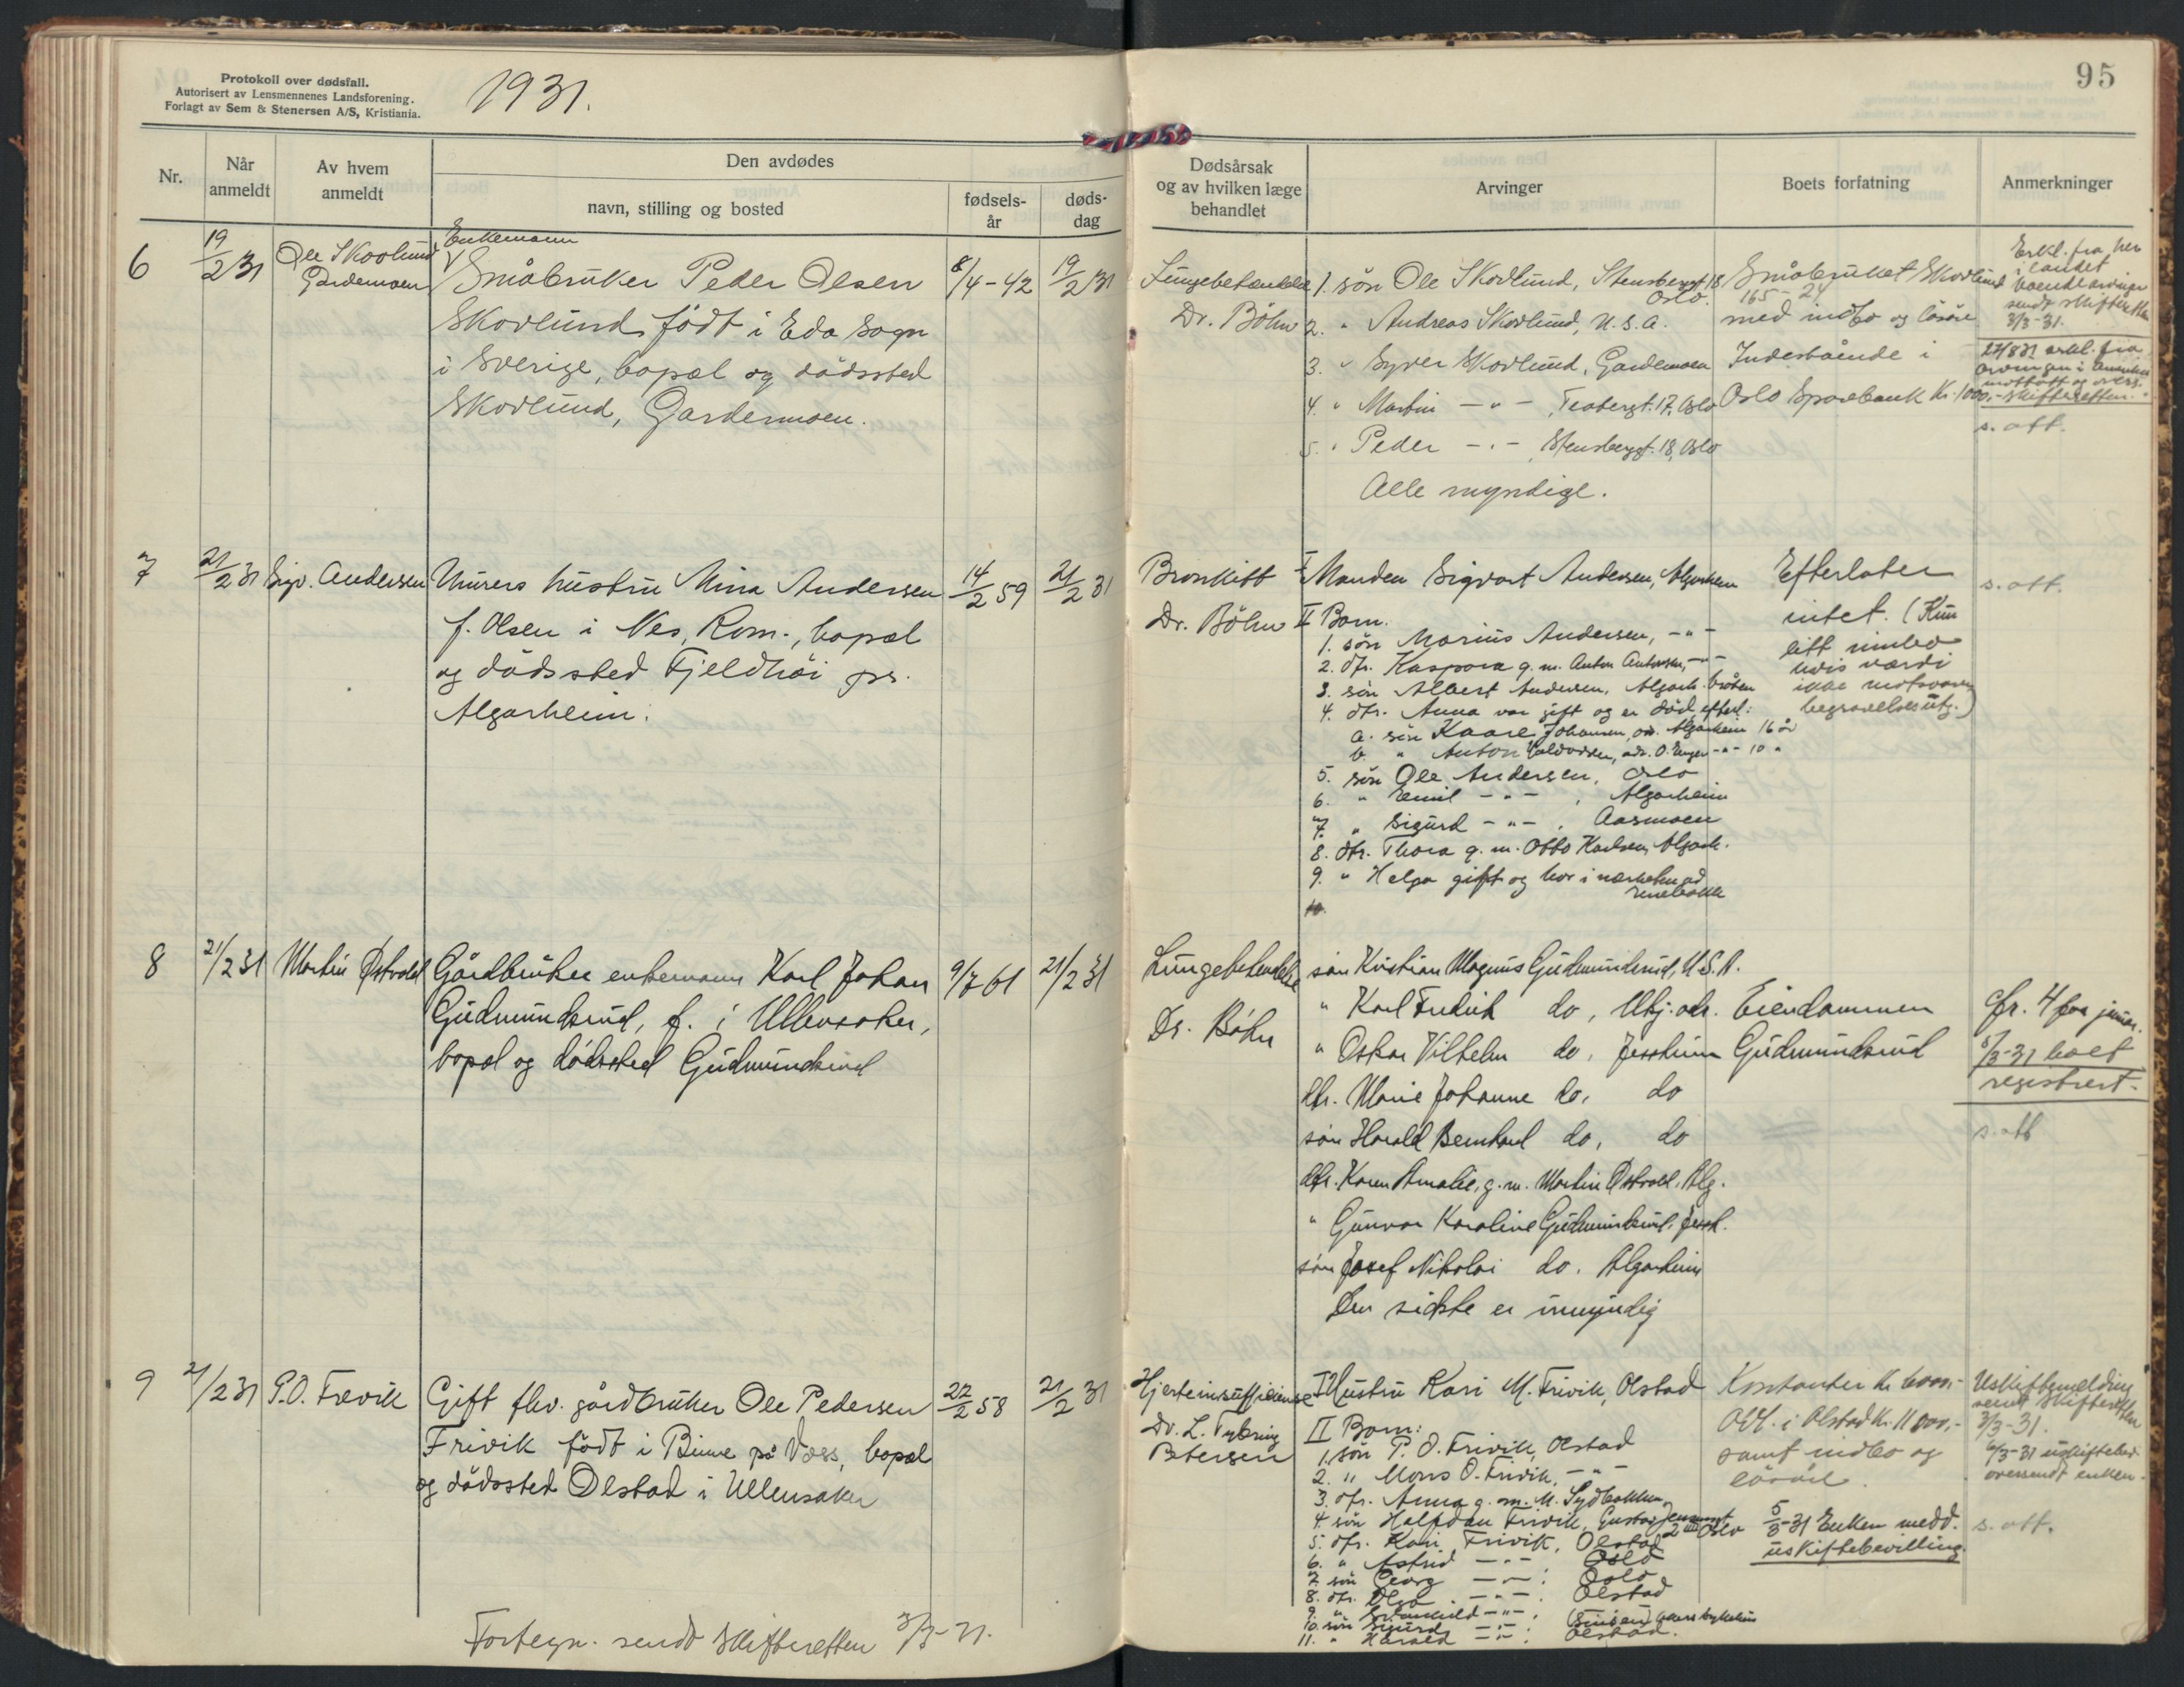 Protokoll over dødsfall.
Autorisert av Lensmennenes Landsforening.
Forlagt av Sem & Stenersen A/S, Kristiania.
1931.
95
Nr.
Når anmeldt
Av hvem anmeldt
Den avdødes
navn, stilling og bosted
fødselsår
dødsdag
Dødsårsak og av hvilken læge behandlet
Arvinger
Boets forfatning
Anmerkninger
6
19/2 31
Ole Skovlund
Gardemoen
Enkemann
Småbruker Peder Olsen
Skovlund, født i Eda Sogn
i Sverige, bopæl og dødssted
Skovlund, Gardermoen.
8/4-42
19/2 31
Lungebetændelse
Dr. Böhn
1. søn Ole Skovlund, Stensbergt 18
Oslo.
2. " Andreas Skovlund, U.S.A.
3. " Syver Skovlund, Gardemoen
4. " Martin -"- , 17, Oslo
5. " Peder -"- , Stensbergt. 18, Oslo
Alle myndige.
Småbruket Skovlund
165 - 24
med indbo og løsøre
Indestående i
Oslo Sparebank Kr. 1000,-
Erkl. fra her
i landet
boende arvinger
sendt skifteretten
3/3-31.
27/8 31 erkl. fra
arvingen i Amerika
mottatt og overs.
skifteretten.
s. att.
7
21/2 31
Sigv. Andersen
Murers hustru Mina Andersen
f. Olsen i Nes, Rom., bopæl
og dødssted Fjeldhøi pr.
Algarheim.
14/2 59
21/2 31
Bronkitt
Dr. Böhn
I Manden Sigvart Andersen, Algarheim
II Barn.
1. søn Marius Andersen, -"-
2. dtr. Kaspara g. m. Anton Antonsen, -"-
3. søn Albert Andersen, Algarh. bråten
4. dtr. Anna var gift og er død efterl:
a. søn Kaare Johansen, adr. Algarheim 16 år
b. " Anton Halvorsen, adr. O. Enger -"- 10 "
5. søn Ole Andersen, Oslo
6. " Emil -"- , Algarheim
7. " Sigurd -"- , Aasmoen
8. dtr. Thora g. m. Otto Karlsen, Algarh.
9. " Helga gift og bor i nærheten av
10.
Efterlater
intet. (Kun
litt innbo
hvis værdi
ikke motsvarer
begravelsesutg.)
s. att.
8
21/2 31
Martin Østvold
Gårdbruker enkemann Karl Johan
Gudmundsrud, f. i Ullensaker,
bopæl og dødssted Gudmundsrud
9/7 61
21/2 31
Lungebetændelse
Dr. Böhn
søn Kristian Magnus Gudmundsrud, U.S.A.
" Karl Fredrik do, Ukj. adr.
" Oskar Vilhelm do, Jessheim
dtr. Marie Johanne do, do
søn Harald Bernhard do, do
dtr. Karen Amalie, g. m. Martin Østvold, Alg.
" Gunvor Karoline Gudmundsrud, Jessh.
søn Josef Nikolai do. Algarheim
Den sidste er umyndig
Eiendommen
Gudmundsrud
cfr. 4 for januar.
5/3-31 boet
registrert.
s. att
9
21/2 31
P.O. Frivik
Gift flv. gårdbruker Ole Pedersen
Frivik født i på Voss, bopæl
og dødssted Olstad i Ullensaker
22/2 58
21/2 31
Hjerteinsuffisiense
Dr. L. Tybring
Petersen
I Hustru Kari M. Frivik, Olstad
II Barn:
1. søn P. O. Frivik, Olstad
2. " Mons O. Frivik, -"-
3. dtr. Anna g. m. M. Sydbakken
4. søn Halfdan Frivik,
2 Oslo
5. dtr. Kari Frivik, Olstad
6. " Astrid -"- Oslo
7. søn Georg -"- : Oslo
8. dtr. Olga -"- Olstad
9. " -"-
10. søn Sigurd -"-
11. " Harald -"- : Olstad.
Kontanter kr. 6000,-
Obl. i Olstad kr. 11000,-
samt indbo og
løsøre.
5/3-31 Enken medd.
uskiftebevilling.
Uskiftemelding
sendt skifteretten
3/3-31.
6/3-31 uskiftebev.
oversendt enken.
s. att.
Fortegn. sendt skifteretten 3/3-31.